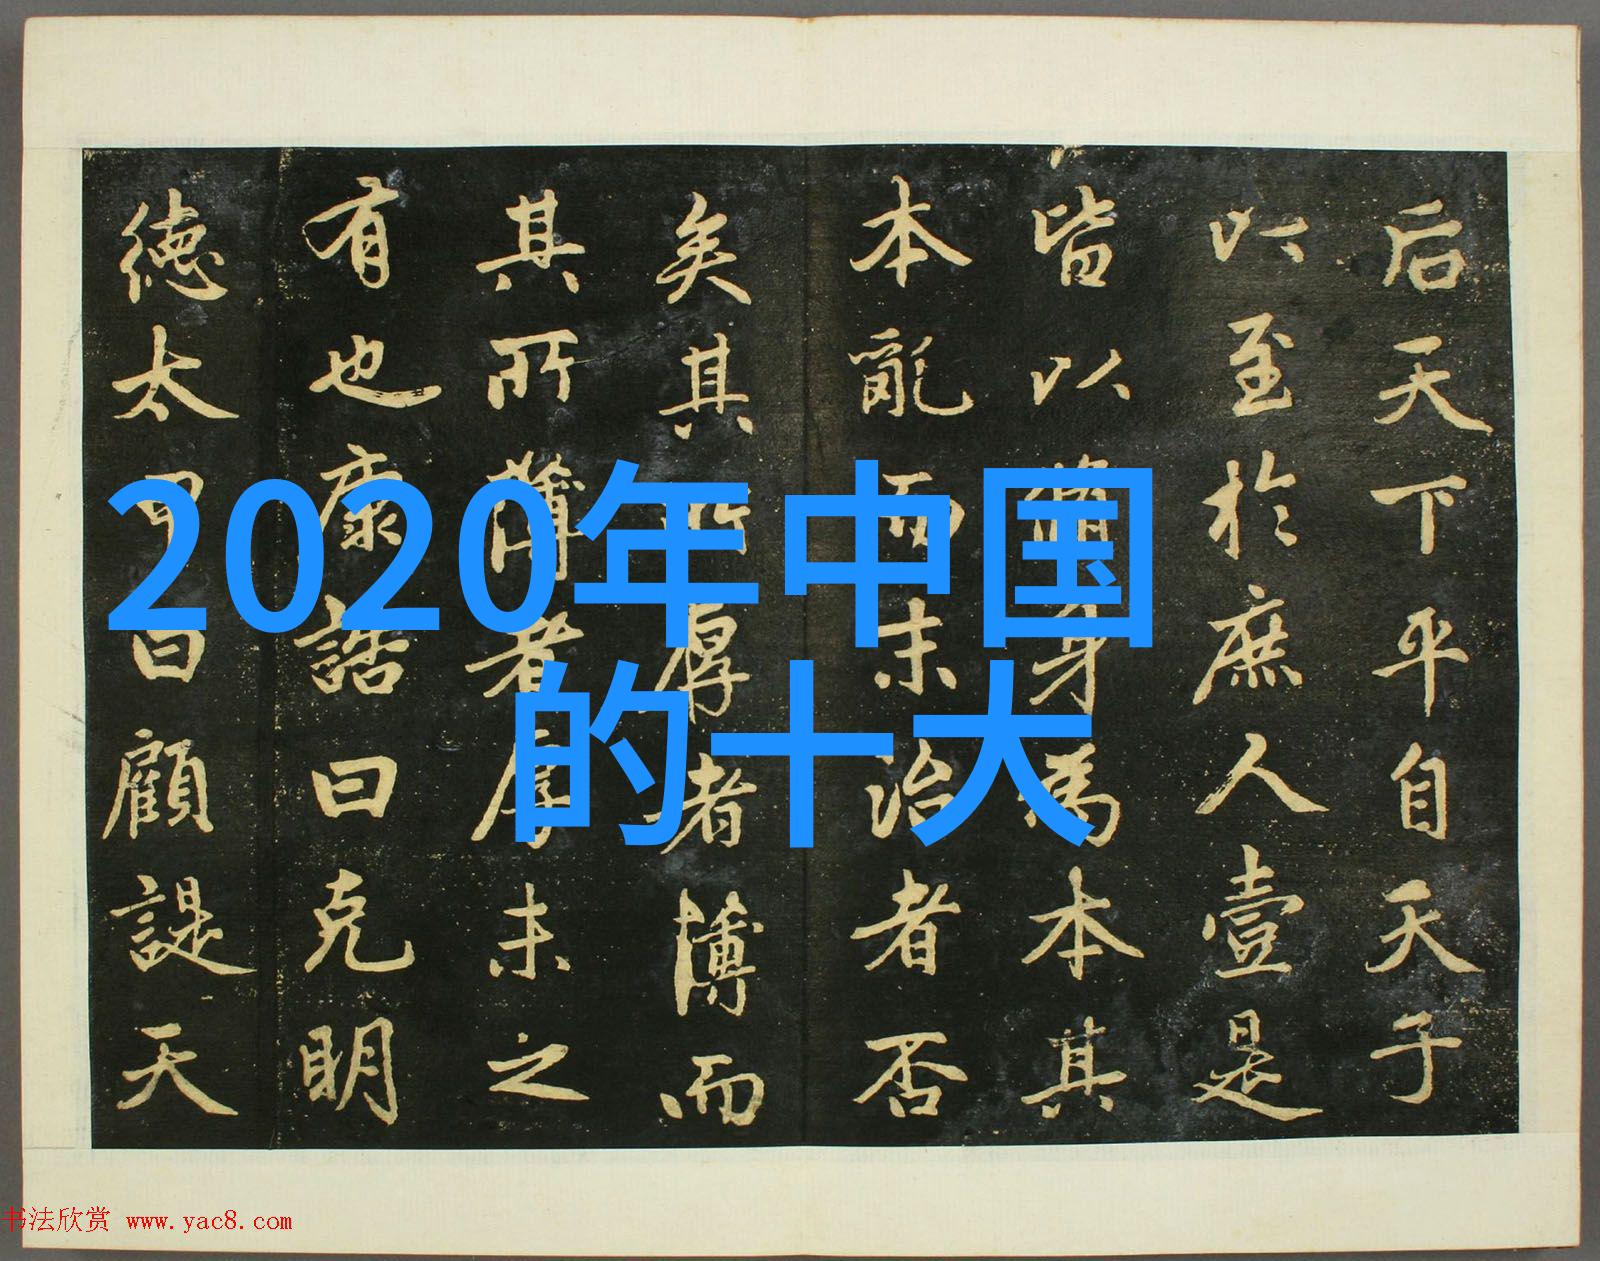 后天下平自天子
以至於庶人壹是
皆以脩身為本其
本亂而末治者否
矣其所厚者薄而
其所薄者厚未之
有也康誥曰克明
徳太甲曰顧諟天
2020年中国
的十大
书法欣赏 www.yac8.com